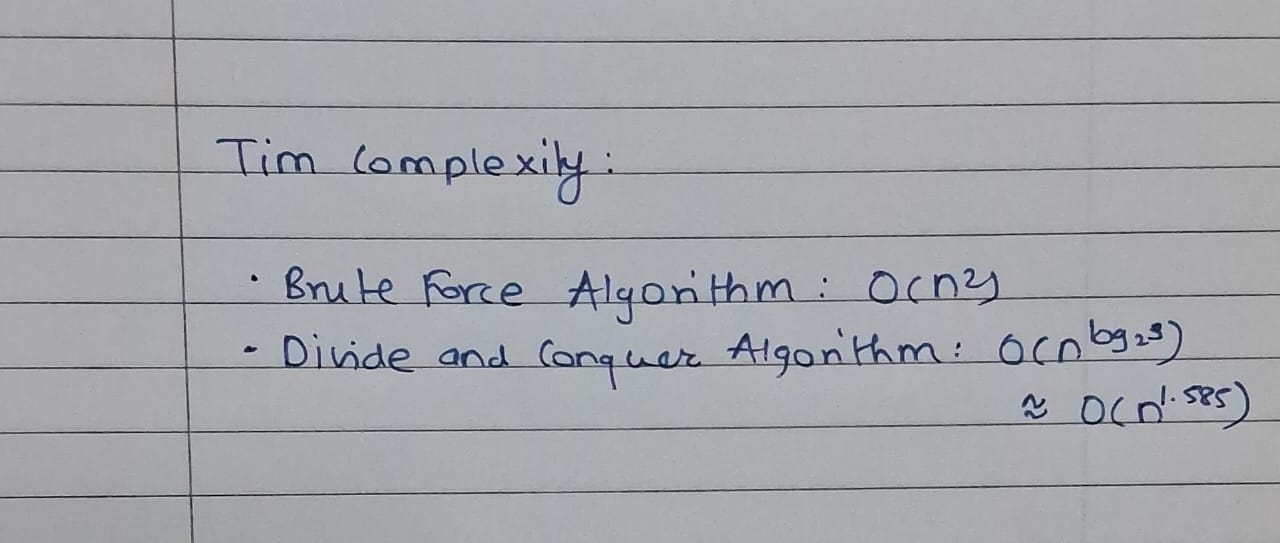 Tim Complexity:
· Brute Force Algorithm: O(n²)
· Divide and Conquer Algorithm: O(n^log₂3)
≈ O(n^1.585)